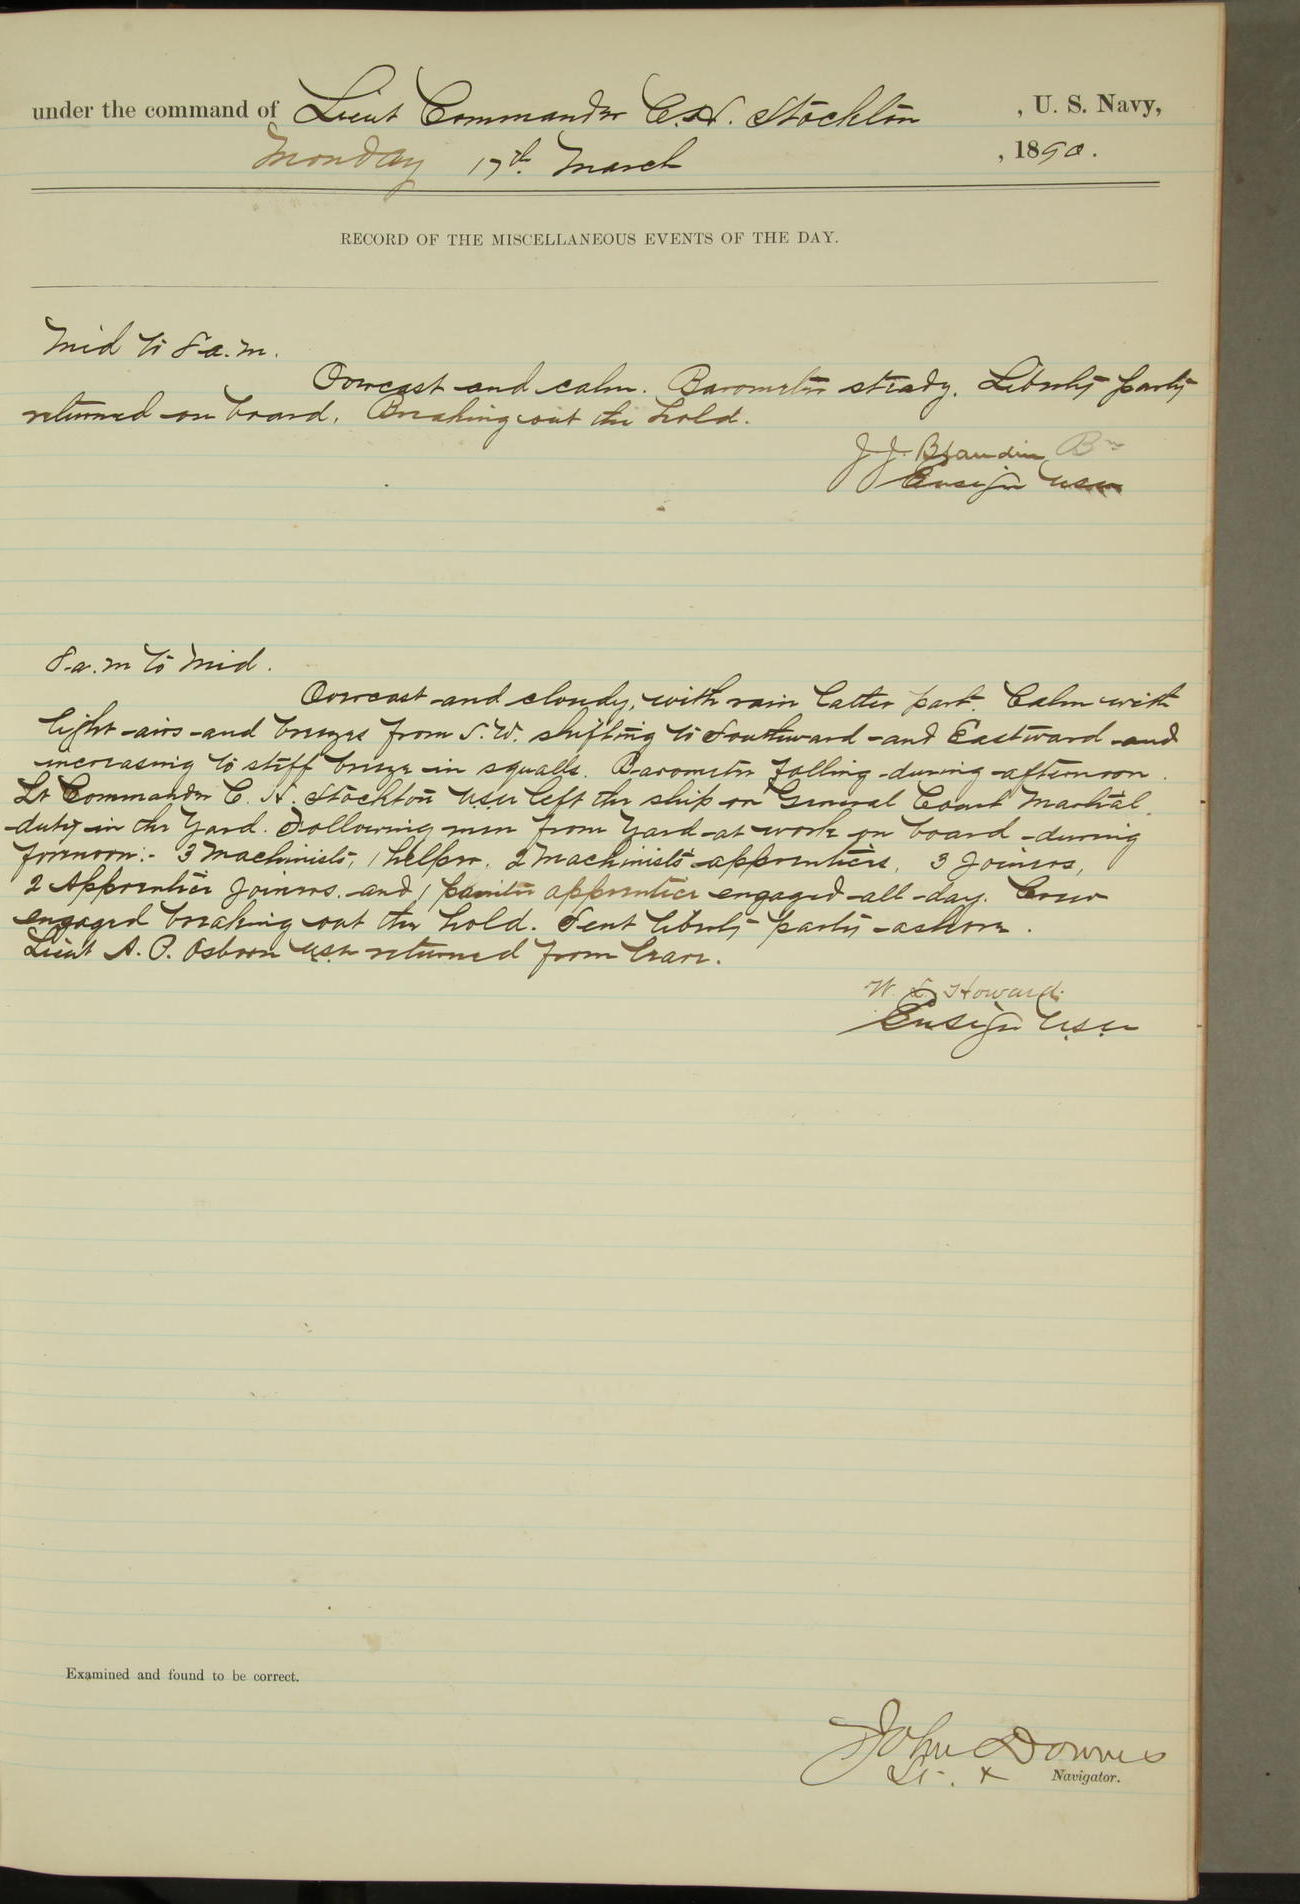 under the command of Lieut Commander C. H. Stockton, U. S. Navy,
Monday 17th March, 1890.
RECORD OF THE MISCELLANEOUS EVENTS OF THE DAY.
Mid to 8 a.m.
Overcast and calm. Barometer steady. Liberty party
returned on board. Breaking out the hold.
J. J. Blandin
Ensign USN
8 a.m to Mid.
Overcast and cloudy, with rain latter part. Calm with
light airs and breezes from S.W. shifting to Southward and Eastward and
increasing to stiff breeze in squalls. Barometer falling during afternoon.
Lt Commander C. H. Stockton USN left the ship on General Court Martial
duty in the Yard. Following men from Yard at work on board during
forenoon:- 3 Machinists, 1 helper, 2 Machinists apprentices, 3 Joiners,
2 Apprentice Joiners, and 1 painter apprentice engaged all day. Crew
engaged breaking out the hold. Sent liberty party ashore.
Lieut A. P. Osborn USN returned from leave.
W. L. Howard.
Ensign USN
Examined and found to be correct.
John Downes
Lt. & Navigator.